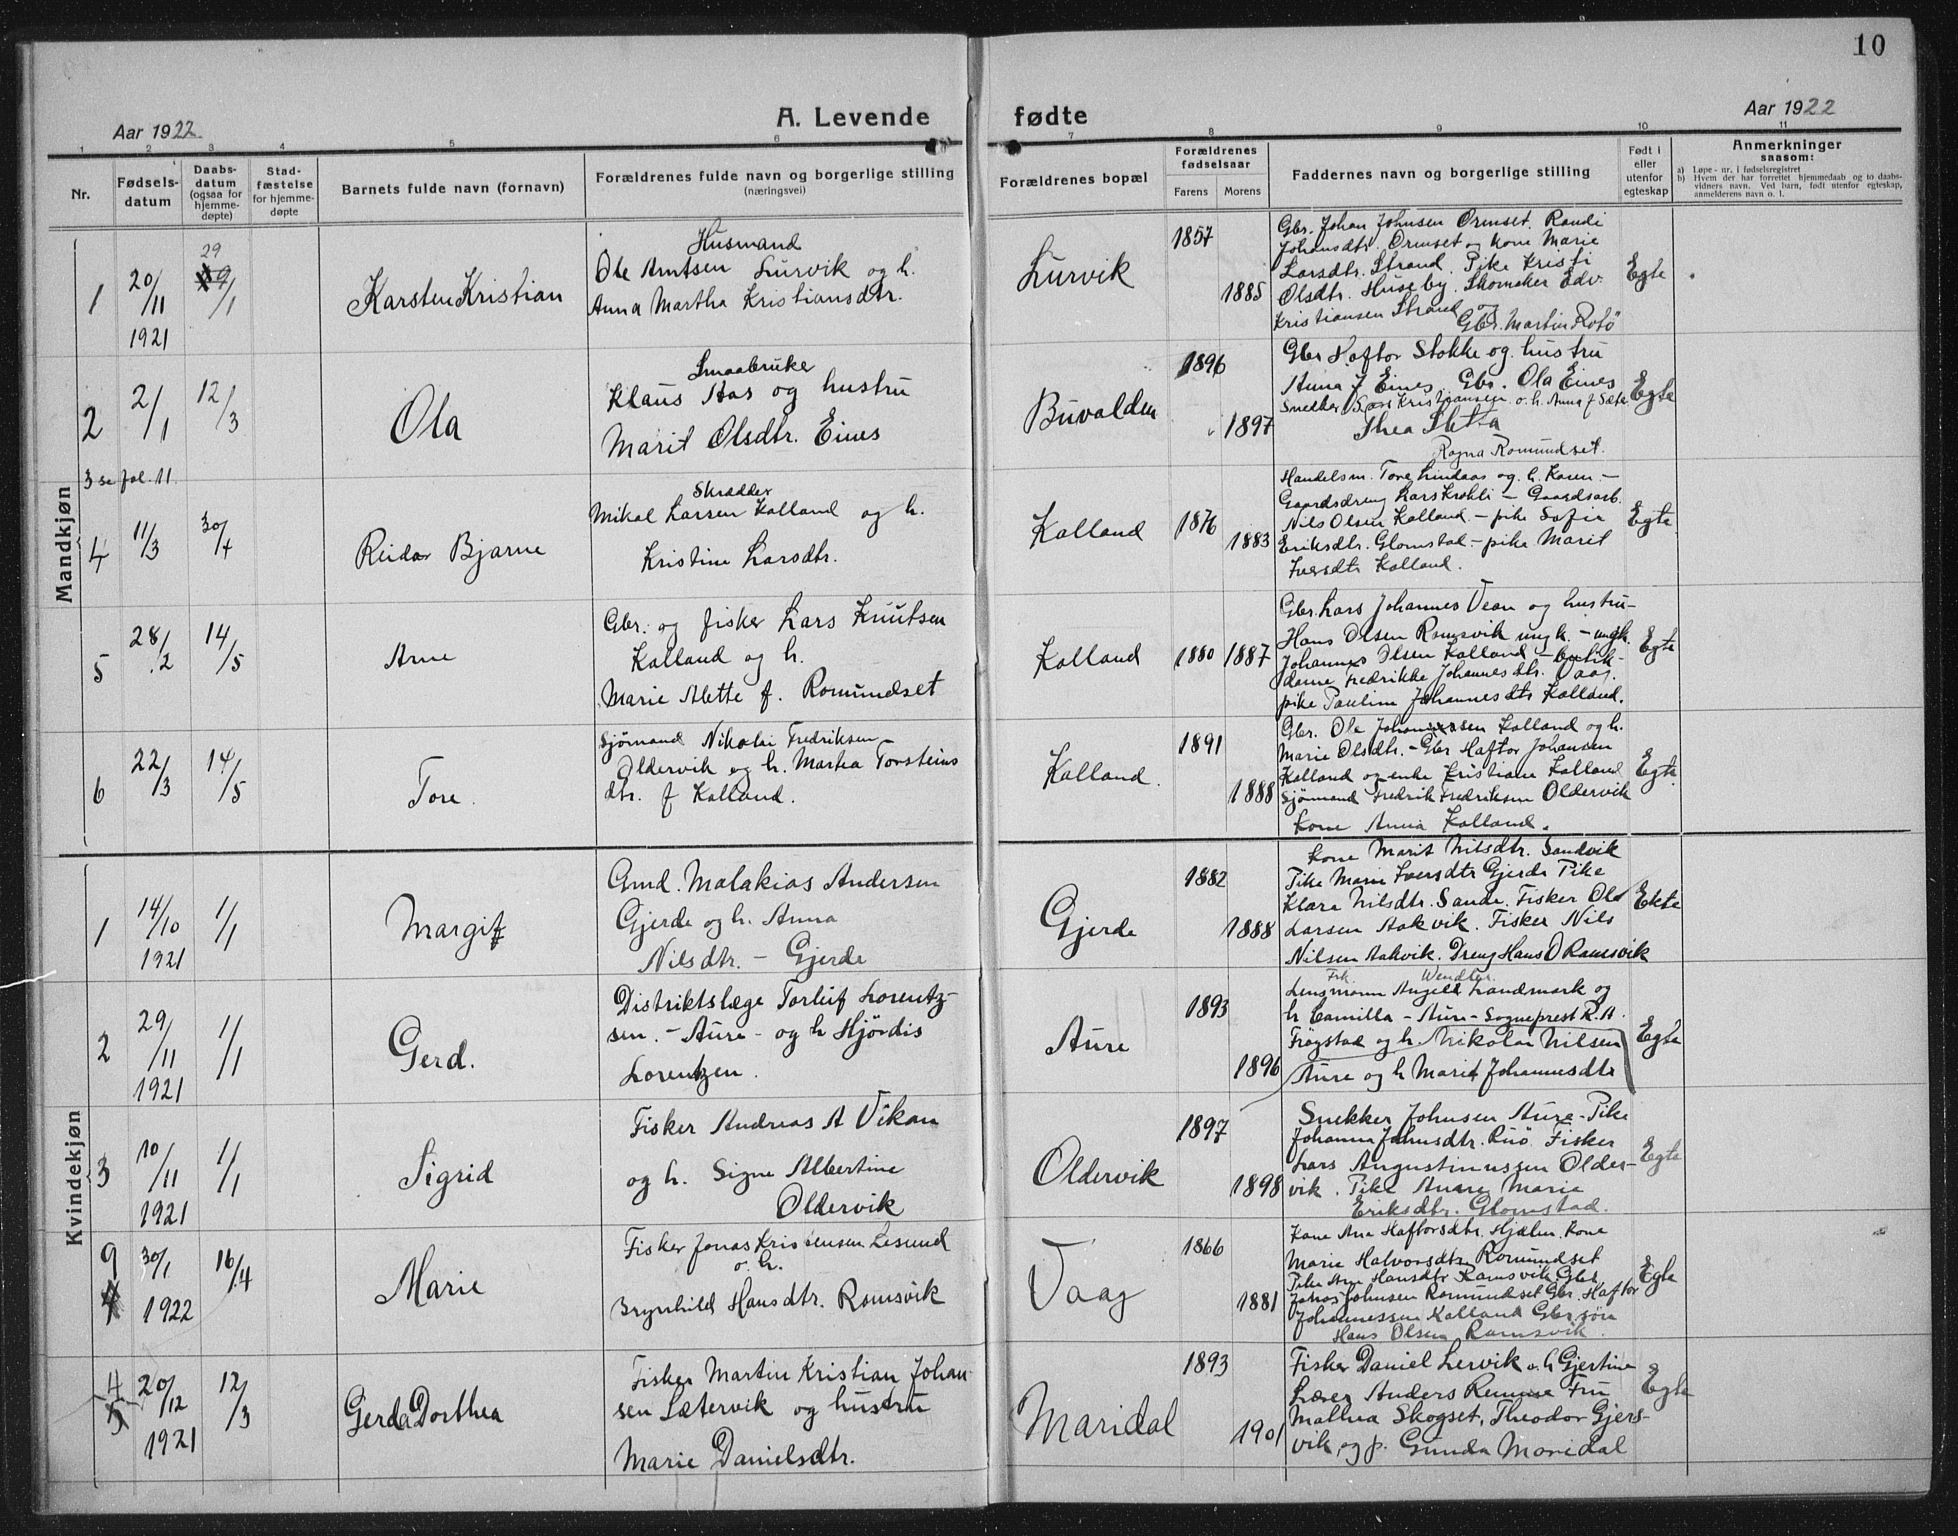 10
Aar 1922
A. Levende fødte
Aar 1922
1 2 3 4 5 6 7 8 9 10 11
Nr.
Fødsels-
datum
Daabs-
datum
(ogsaa for
hjemme-
døpte)
Stad-
fæstelse
for hjemme-
døpte
Barnets fulde navn (fornavn)
Forældrenes fulde navn og borgerlige stilling
(næringsvei)
Forældrenes bopæl
Forældrenes
fødselsaar
Farens Morens
Faddernes navn og borgerlige stilling
Født i
eller
utenfor
egteskap
Anmerkninger
saasom:
a) Løpe-nr. i fødselsregistret
b) Hvem der har forrettet hjemmedaab og to daabs-
vidners navn. Ved barn, født utenfor egteskap,
anmelderens navn o. l.
Mandkjøn
1
20/11
1921
29/1
Karsten Kristian
Husmand
Ole Arntsen Lurvik og h.
Anna Martha Kristiansdtr.
Lurvik
1857
1885
Gbr. Johan Johnsen Ormset. Randi
Johansdtr. Ormset og kone Marie
Larsdtr. Strand. Pike Kristi
Olsdtr. Huseby. Skomaker Edv.
Kristiansen Strand og
Gbr. Martin Rotø
Egte
2
2/1
12/3
Ola
Smaabruker
Klaus Aas og hustru
Marit Olsdtr. Eines
Buvalden
1896
1897
Gbr Haftor Stokke og hustru
Anna J Eines. Gbr. Ola Eines
Snedker Kristiansen o. h. Anna f Sæter
Thea Sletta
Ragna Romundset.
Egte
3 se fol. 11.
4
11/3
30/4
Reidar Bjarne
Skrædder
Mikal Larsen Kalland og h.
Kristine Larsdtr.
Kalland
1876
1883
Handelsm. Tore Lindaas og h. Karen –
Gaardsdreng Lars Krohli – Gaardsarb.
Nils Olsen Kalland – pike Sofie
Eriksdtr. Glomstad – pike Marit
Iversdtr Kalland.
Egte
5
28/2
14/5
Arne
Gbr. og fisker Lars Knutsen
Kalland og h.
Marie Alette f. Romundset
Kalland
1880 1887
Gbr. Lars Johannes Vean og hustru –
Hans Olsen Romsvik ungk. – ungk.
Johannes Olsen Kalland – butik-
dame Fredrikke Johannesdtr. Vaag.
pike Pauline Johannesdtr Kalland.
Egte
6
22/3
14/5
Tore.
Sjømand Nikolai Fredriksen –
Oldervik og h. Martha Torsteins
dtr. f Kalland.
Kalland.
1891
1888
Gbr. Ole Johannessen Kalland og h.
Marie Olsdtr. – Gbr Haftor Johansen
Kalland og enke Kristiane Kalland
Sjømand Fredrik Fredriksen Oldervik
Kone Anna Kalland.
Egte.
Kvindekjøn
1
14/10
1921
1/1
Margit
Gmd. Malakias Andersen
Gjerde og h. Anna
Nilsdtr. – Gjerde
Gjerde
1882
1888
Kone Marit Nilsdtr. Sandvik
Pike Marie Iversdtr Gjerde Pike
Klara Nilsdtr. Sande. Fisker Ole
Larsen Aakvik. Fisker Nils
Nilsen Aakvik. Dreng Hans O Ramsvik
Ekte
2
29/11
1921
1/1
Gerd.
Distriktslæge Torleif Lorentz-
sen. – Aure – og h Hjørdis
Lorentzen.
Aure
1893
1896
Frk. Wendler.
Lensmann Angell Landmark og
h Camilla – Aure – Sogneprest R. A.
Frøgstad og h. Nikolai Nilsen
Aure og h Marit Johannesdtr
Egte
3
10/11
1921
1/1
Sigrid
Fisker Andreas A Vikan
og h. Signe Albertine
Oldervik
Oldervik
1897
1898
Snekker Johnsen Aure – Pike
Johanna Johnsdtr. Ruø Fisker
Lars Augustinussen Older-
vik. Pike Anne Marie
Eriksdtr. Glomstad.
Egte
9
30/1
1922
16/4
Marie
Fisker Jonas Kristensen Lesund
o. h.
Brynhild Hansdtr. Romsvik
Vaag
1866
1881
Kone Ane Haftorsdtr. Hjælm. Kone
Marie Halvorsdtr Romundset
Pike Ane Hansdtr Ramsvik Gbr.
Johnsen Romundset Gbr. Haftor
Johannessen Kalland Gbrsøn
Hans Olsen Ramsvik.
Egte
4
20/12
1921
12/3
Gerda Dorthea
Fisker Martin Kristian Johan-
sen Sætervik og hustru
Marie Danielsdtr.
Maridal
1893
1901
Fisker Daniel Lervik o. h Gjertine
Lærer Anders Remme Fru
Mathea Skogset, Theodor Gjers-
vik og p. Gunda Maridal
Egte